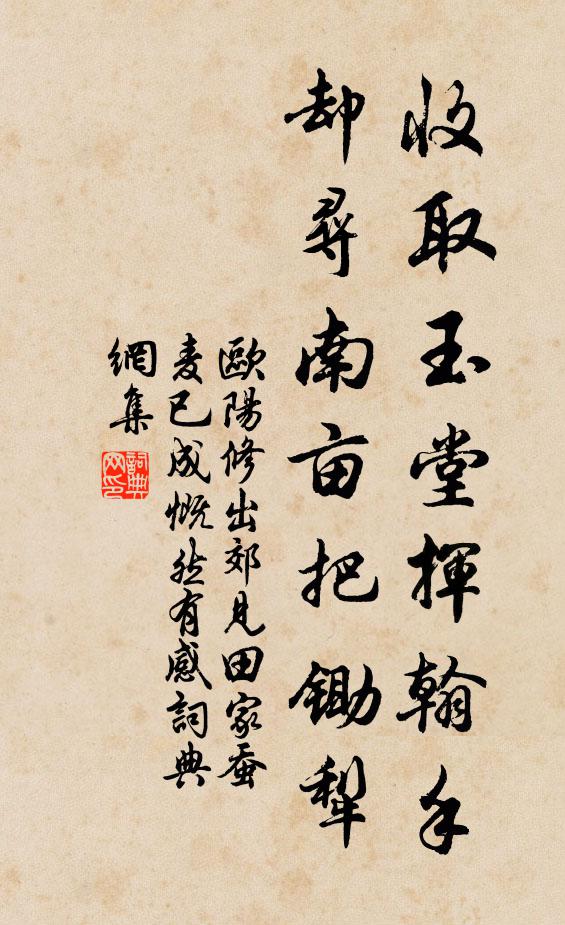 收取玉堂揮翰手
却尋南亩把鋤犁
歐陽修出郊見田家蚕
麦已成慨然有感詞典
網集
詞典网印